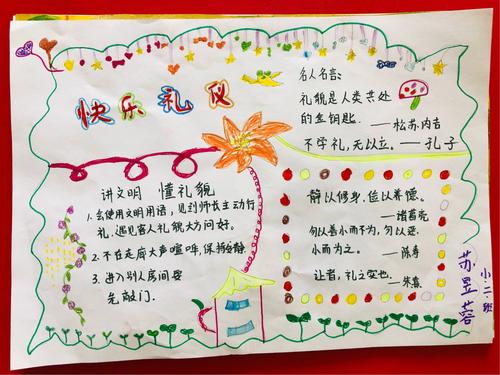 快乐礼仪
名人名言:
礼貌是人类共处
的金钥匙.
——松苏内吉
不学礼,无以立。——孔子
讲文明 懂礼貌
1.会使用文明用语,见到师长主动行
礼,遇见客人礼貌大方问好。
2.不在走廊大声喧哗,保持安静.
3.进入别人房间要
先敲门.
静以修身,俭以养德。
——诸葛亮
勿以善小而不为,勿以恶
小而为之。
——陈寿
让者,礼之实也.
——朱熹
小.二.班
苏昱蓉